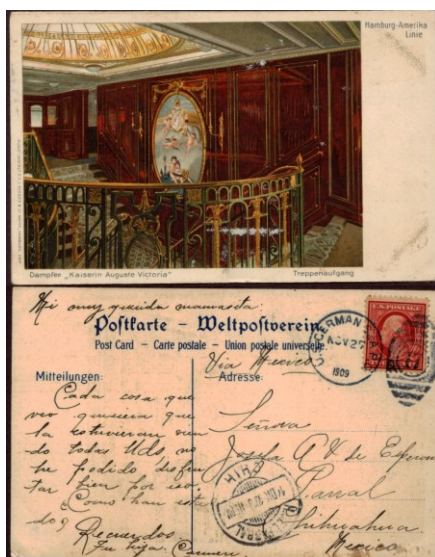 Hamburg-Amerika
Linie
Dampfer „Kaiserin Auguste Victoria"
Treppenaufgang
Mi muy querida mamacita:
Postkarte – Weltpostverein.
Post Card – Carte postale – Union postale universelle.
Via Mexico
Mitteilungen:
Adresse:
Cada cosa que
veo quisiera que
la estuvieran vien
do todas Uds, no
he podido disfru
tar bien por eso.
Como han esta
do?
Recuerdos.
Su hija. Carmen
Señora
Josefa A. V. de
Parral
Chihuahua
Mexico
U.S. GERMAN SEA P.O.
NOV 27
1909
CHIH